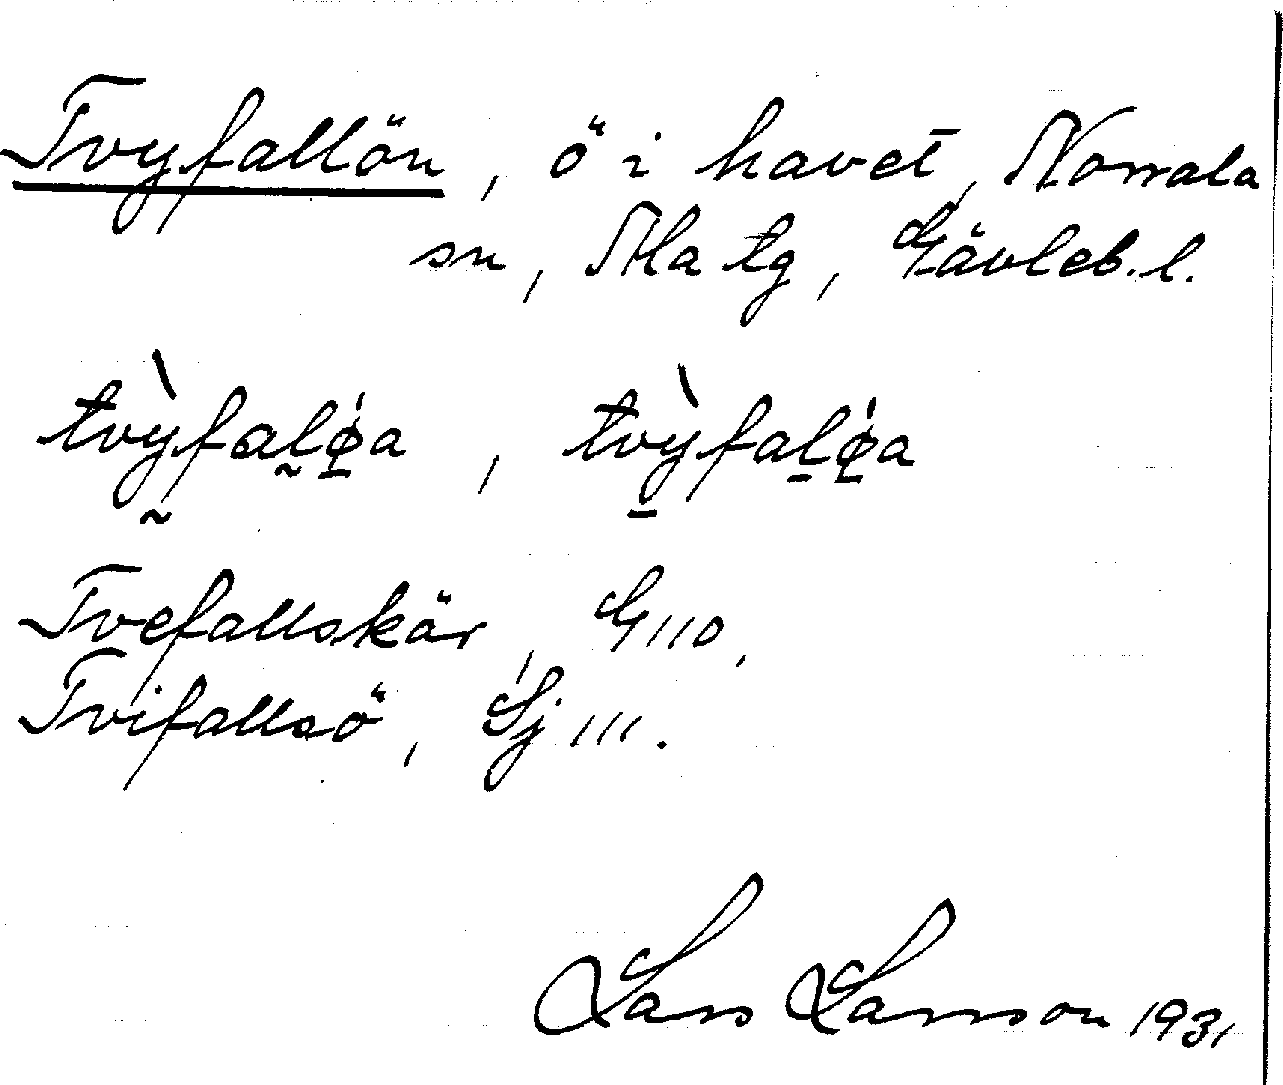 Tvyfallön, ö i havet, Norrala
sn, Ala tg, Gävleb. l.
tvỳ̰fal̰ǿ̱a, tvỳ̱faḻǿ̱a
Tvefallskär, G 110,
Tvifallsö, Sj 111.
Lars Larsson 1931